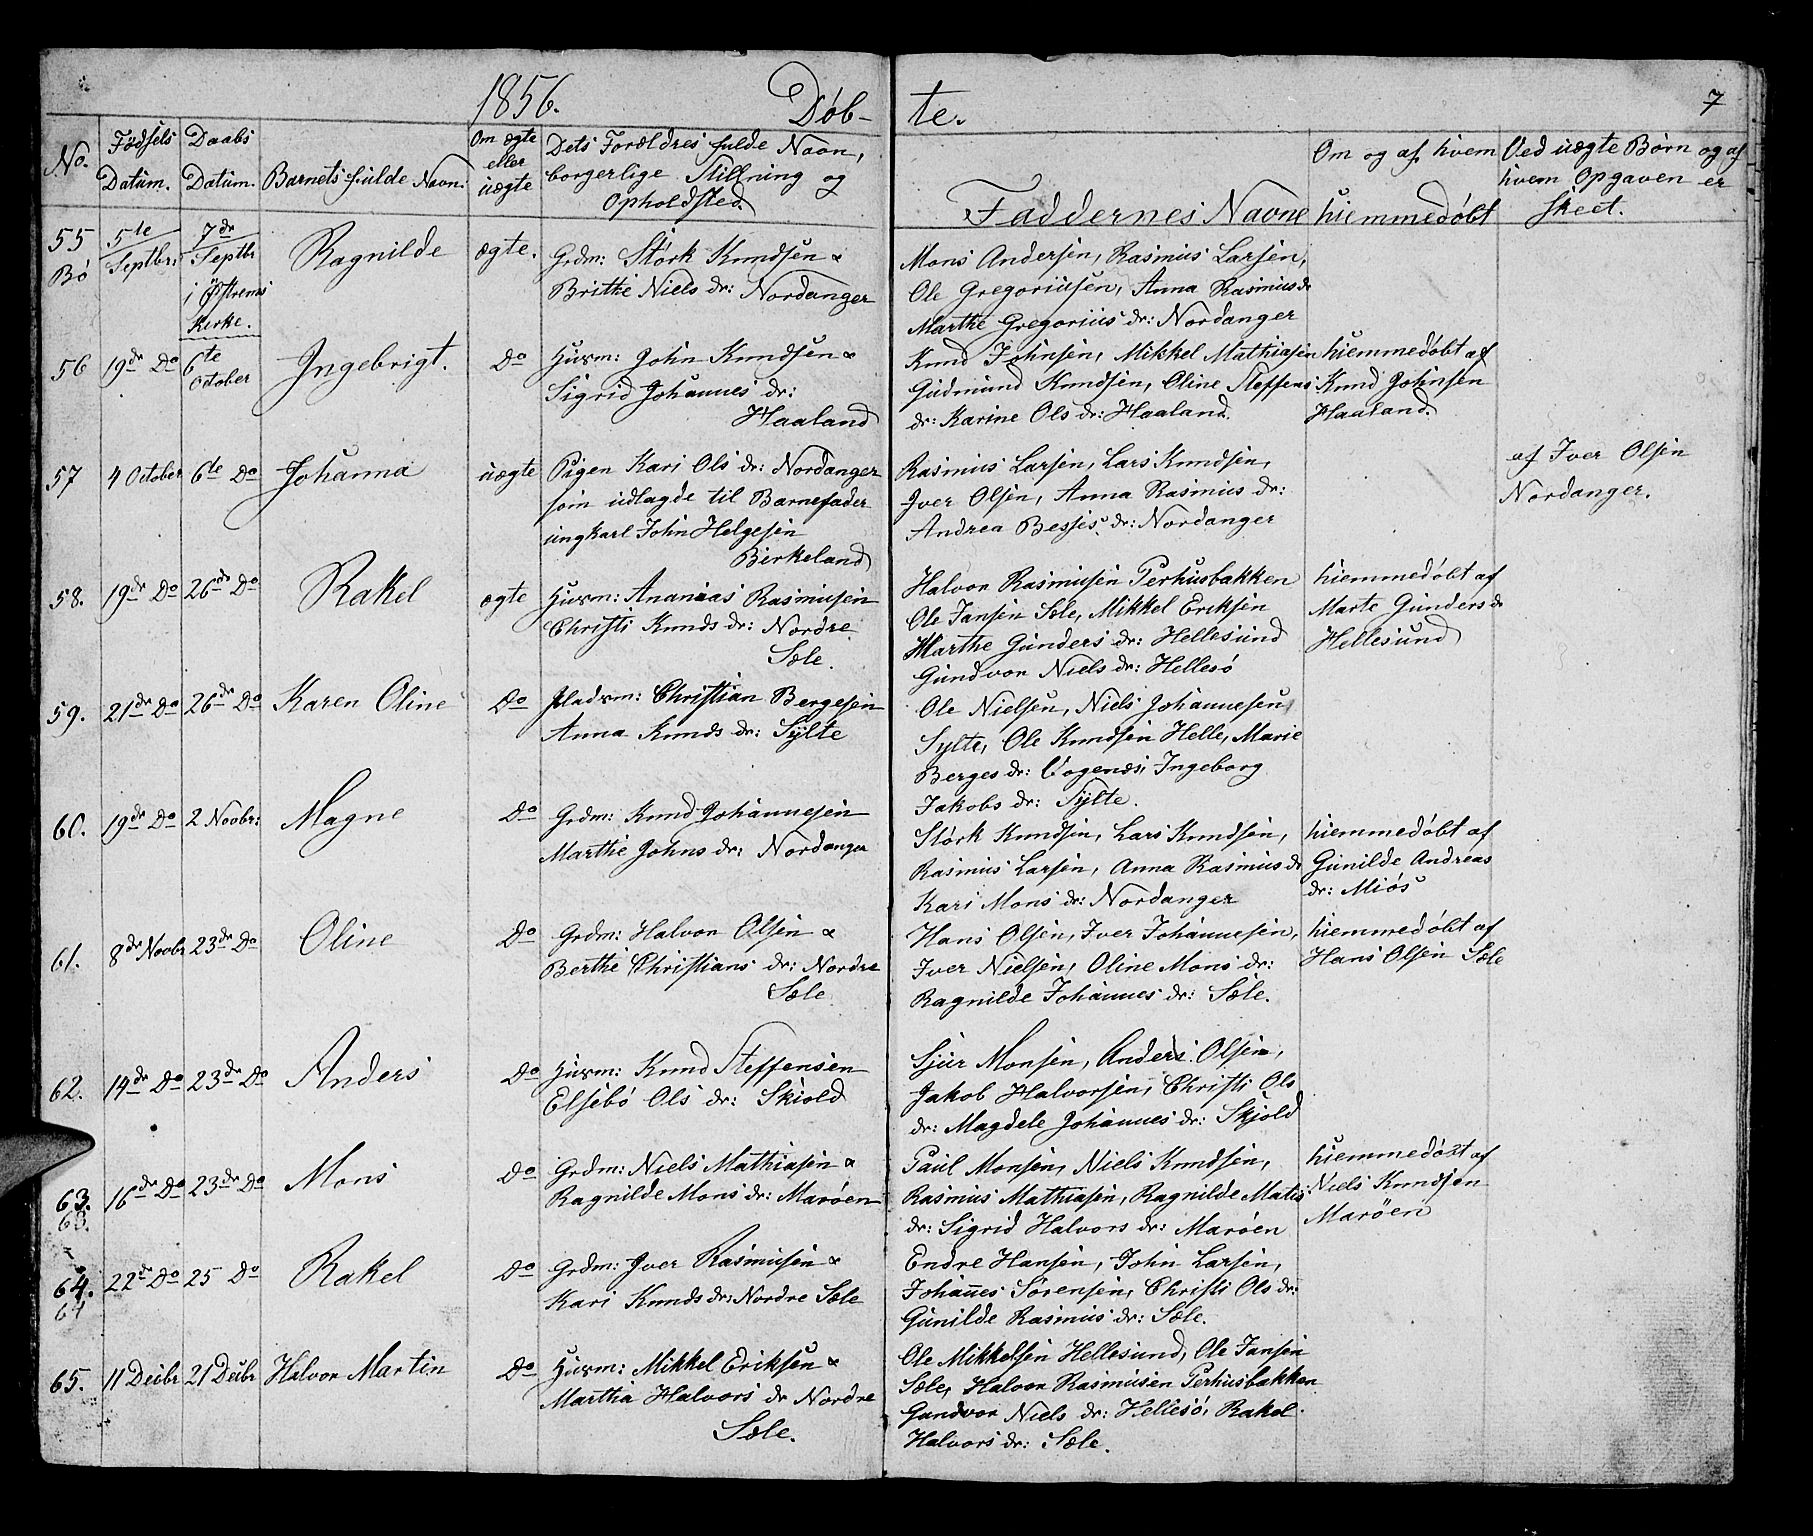 1856. Døb- te. 7
No. Fødsels Datum. Daabs Datum. Barnets fulde Navn. Om ægte eller uægte Dets Forældres fulde Navn, borgerlige Stilling og Opholdsted. Faddernes Navne Om og af hvem hiemmedøbt Ved uægte Børn og af hvem Opgaven er skeet.
55 Bø 5te Septbr: 7de Septbr i Østrems Kirke. Ragnilde ægte. Grdm: Størk Knudsen &
Brithe Niels dr: Nordanger
Mons Andersen, Rasmus Larsen,
Ole Gregoriusen, Anna Rasmus dr
Marthe Gregorius dr: Nordanger
56 19de Do 6te October Ingebrigt. Do Husm: John Knudsen &
Sigrid Johannes dr:
Haaland
Knud Johnsen, Mikkel Mathiasen
Gudmund Knudsen, Oline Steffens
dr: Karine Ols dr: Haaland.
hiemmedøbt af
Knud Johnsen
Haaland.
57 4 October 6te Do Johanna uægte Pigen Kari Ols dr: Nordanger
som udlagde til Barnefader
ungkarl John Helgesen
Birkeland
Rasmus Larsen, Lars Knudsen,
Iver Olsen, Anna Rasmus dr:
Andrea Besses dr: Nordanger
af Iver Olsen
Nordanger.
58. 19de Do 26de Do Rakel ægte Husm: Ananias Rasmusen
Christi Knuds dr: Nordre
Sæle.
Halvor Rasmusen Perhusbakken
Ole Jansen Sæle, Mikkel Eriksen
Marthe Gunders dr: Hellesund
Gundvor Niels dr: Hellesø
hiemmedøbt af
Marte Gunders dr
Hellesund
59. 21de Do 26de Do Karen Oline Do Pladsm: Christian Bergesen
Anna Knuds dr: Sylte
Ole Nielsen, Niels Johannesen
Sylte, Ole Knudsen Helle, Marie
Berges dr: Vogenæs, Ingeborg
Jakobs dr: Sylte.
60. 19de Do 2 Novbr: Magne Do Grdm: Knud Johannesen
Marthe Johns dr: Nordanger
Størk Knudsen, Lars Knudsen,
Rasmus Larsen, Anna Rasmus dr
Kari Mons dr: Nordanger
hiemmedøbt af
Gunilde Andreas
dr: Miøs
61. 8de Novbr 23de Do Oline Do Grdm: Halvor Olsen &
Berthe Christians dr: Nordre
Sæle
Hans Olsen, Iver Johannesen,
Iver Nielsen, Oline Mons dr:
Ragnilde Johannes dr: Sæle.
hiemmedøbt af
Hans Olsen Sæle
62. 14de Do 23de Do Anders Do Husm: Knud Steffensen
Elsebø Ols dr: Skiold
Sjur Monsen, Anders Olsen,
Jakob Halvorsen, Christi Ols
dr: Magdele Johannes dr: Skjold
63. 63. 16de Do 23de Do Mons Do Grdm: Niels Mathiasen &
Ragnilde Mons dr: Marøen
Paul Monsen, Niels Knudsen,
Rasmus Mathiasen, Ragnilde Matis
dr: Sigrid Halvors dr: Marøen
hiemmedøbt af
Niels Knudsen
Marøen
64. 64 22de Do 25 Do Rakel Do Grdm: Iver Rasmusen &
Kari Knuds dr: Nordre Sæle
Endre Hansen, John Larsen,
Johannes Sørensen, Christi Ols dr:
Gunilde Rasmus dr: Sæle.
65. 11 Decbr 21 Decbr Halvor Martin Do Husm: Mikkel Eriksen &
Martha Halvors dr Nordre
Sæle.
Ole Mikkelsen Hellesund, Ole Jansen
Sæle, Halvor Rasmusen Perhusbakken
Gundvor Niels dr: Hellesø, Rakel
Halvors dr: Sæle.